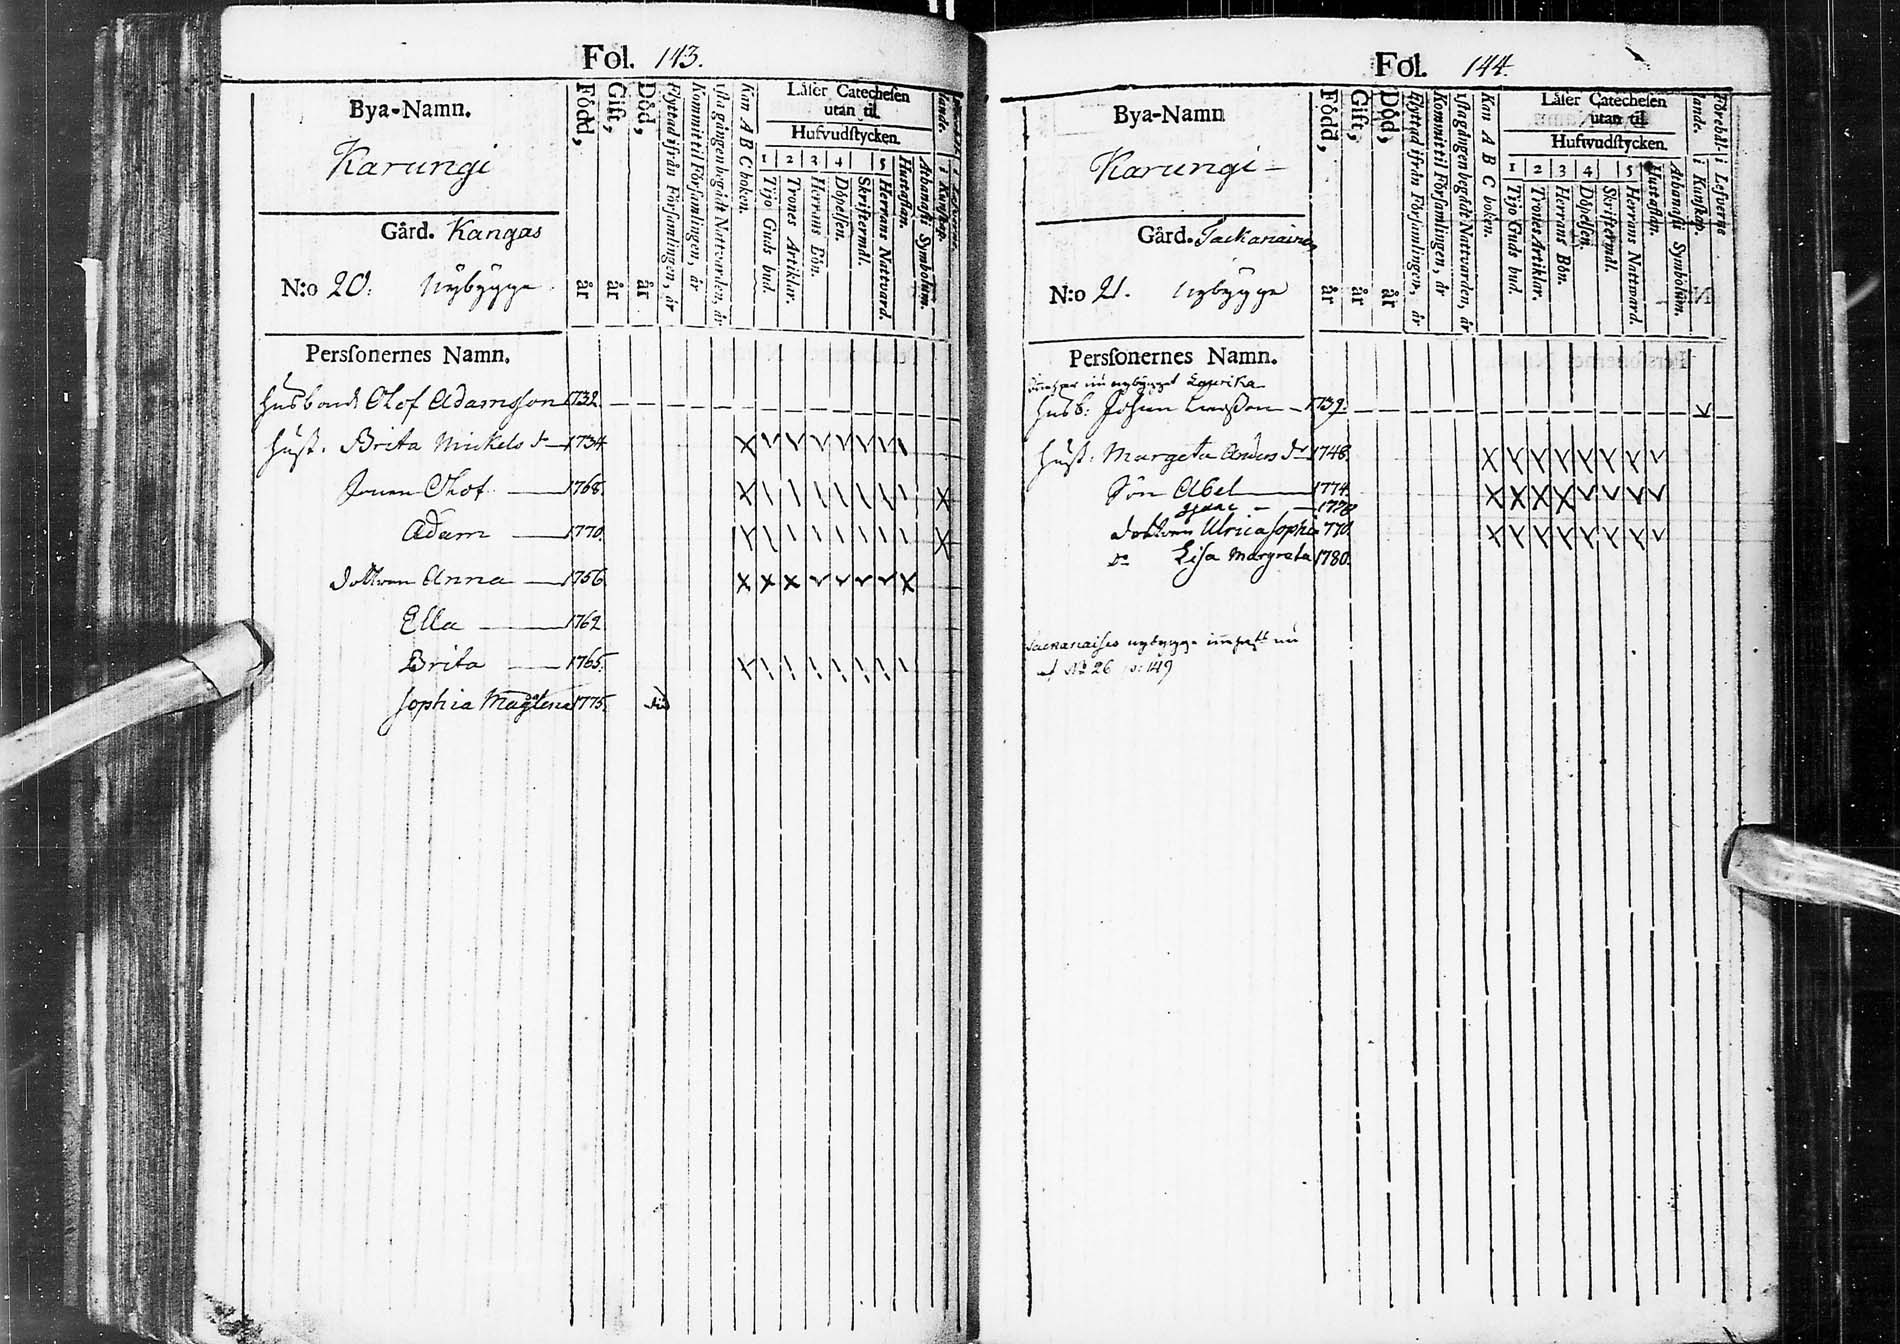 Fol. 143.
Bya-Namn.
Karungi
Gård. Kangas
N:o 20. Nÿbÿgge
Född, år
Gift, år
Död, år
Flyttad ifrån Församlingen, år
Kommit til Församlingen, år
1sta gången begådt Nattvarden, år
Kan A B C boken.
Läser Catechesen
utan til.
Hufvudstycken.
1 2 3 4 5
Tijo Guds bud.
Trones Artiklar.
Herrans Bön.
Döpelsen.
Skriftermål.
Herrans Nattvard.
Hustaflan.
Athanasii Symbolum.
i Kunskap.
Persſonernes Namn.
Husbond: Olof Adamsson 1732.
Hust. Brita Mickels dr 1734
Sonen Olof 1768.
Adam 1770.
dottren Anna 1756.
Ella 1762
Brita 1765.
Sophia Magdlena 1775. död
Fol. 144.
Bya-Namn
Karungi
Gård. Tackanainen
N:o 21. Nybÿgge
Född, år
Gift, år
Död, år
Flyttad ifrån Församlingen, år
Kommit til Församlingen, år
1sta gången begådt Nattvarden, år
Kan A B C boken.
Läser Catechesen
utan til.
Hufvudstycken.
1 2 3 4 5
Tijo Guds bud.
Trones Artiklar.
Herrans Bön.
Döpelsen.
Skriftermål.
Herrans Nattward.
Hustaflan.
Athanasii Symbolum.
Förehållande. i Kunskap.
i Lefverne
Persſonernes Namn.
nybygget
Husb: Johan Larsson 1739.
Hust: Margeta Anders dr 1748.
Son Abel 1774.
Isaac 1778
dottren Ulrica Sophia 770.
dr Lisa Margreta 1780.
nybygge
No 26 p: 149